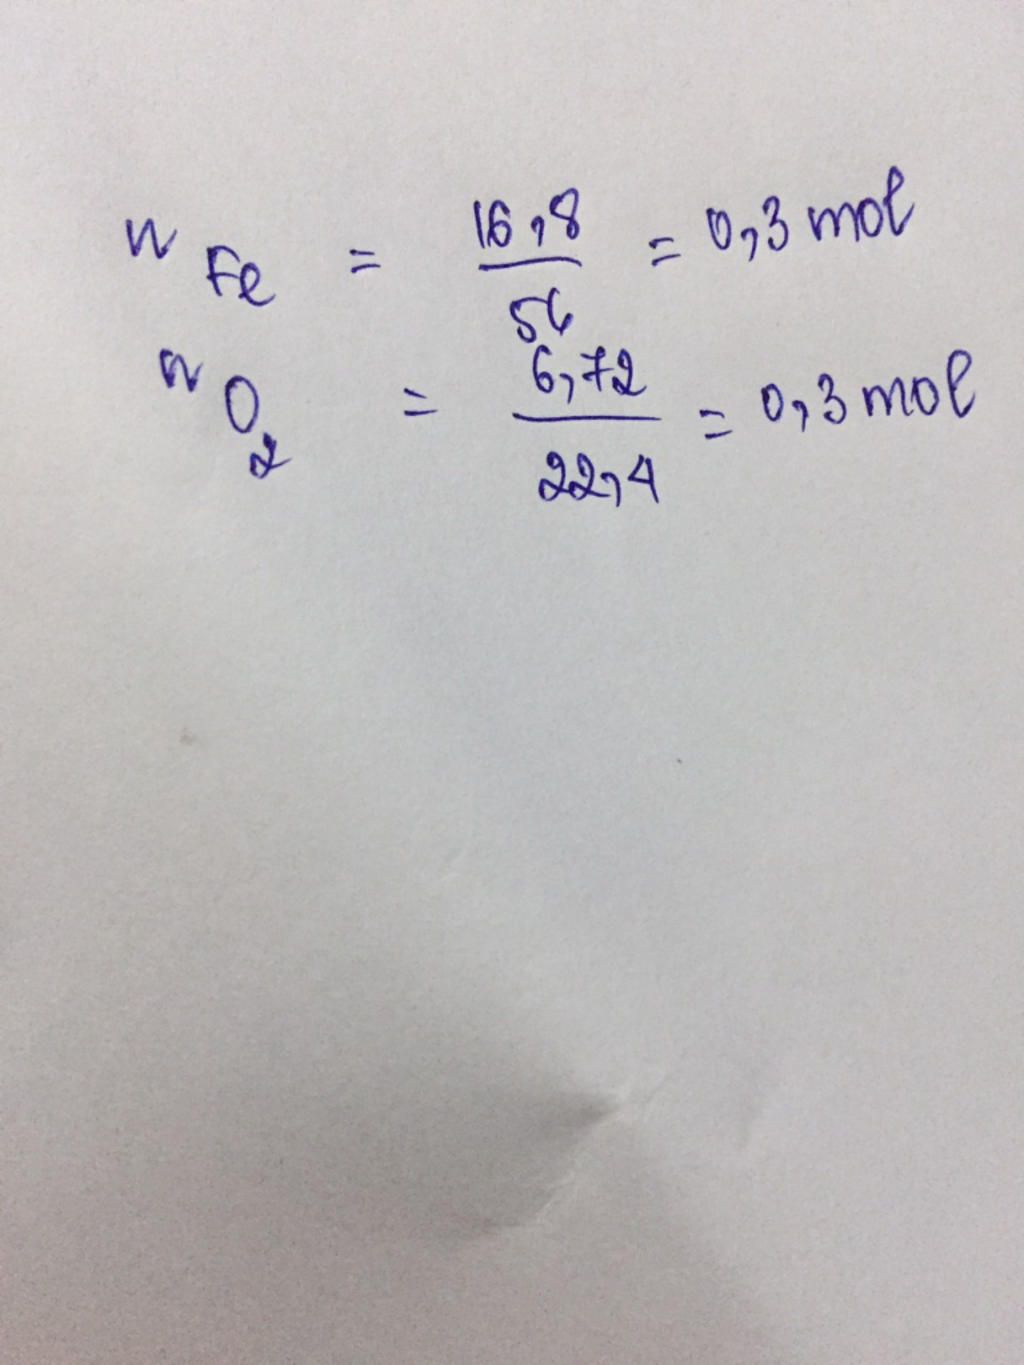 n Fe = 16,8 / 56 = 0,3 mol
n O2 = 6,72 / 22,4 = 0,3 mol